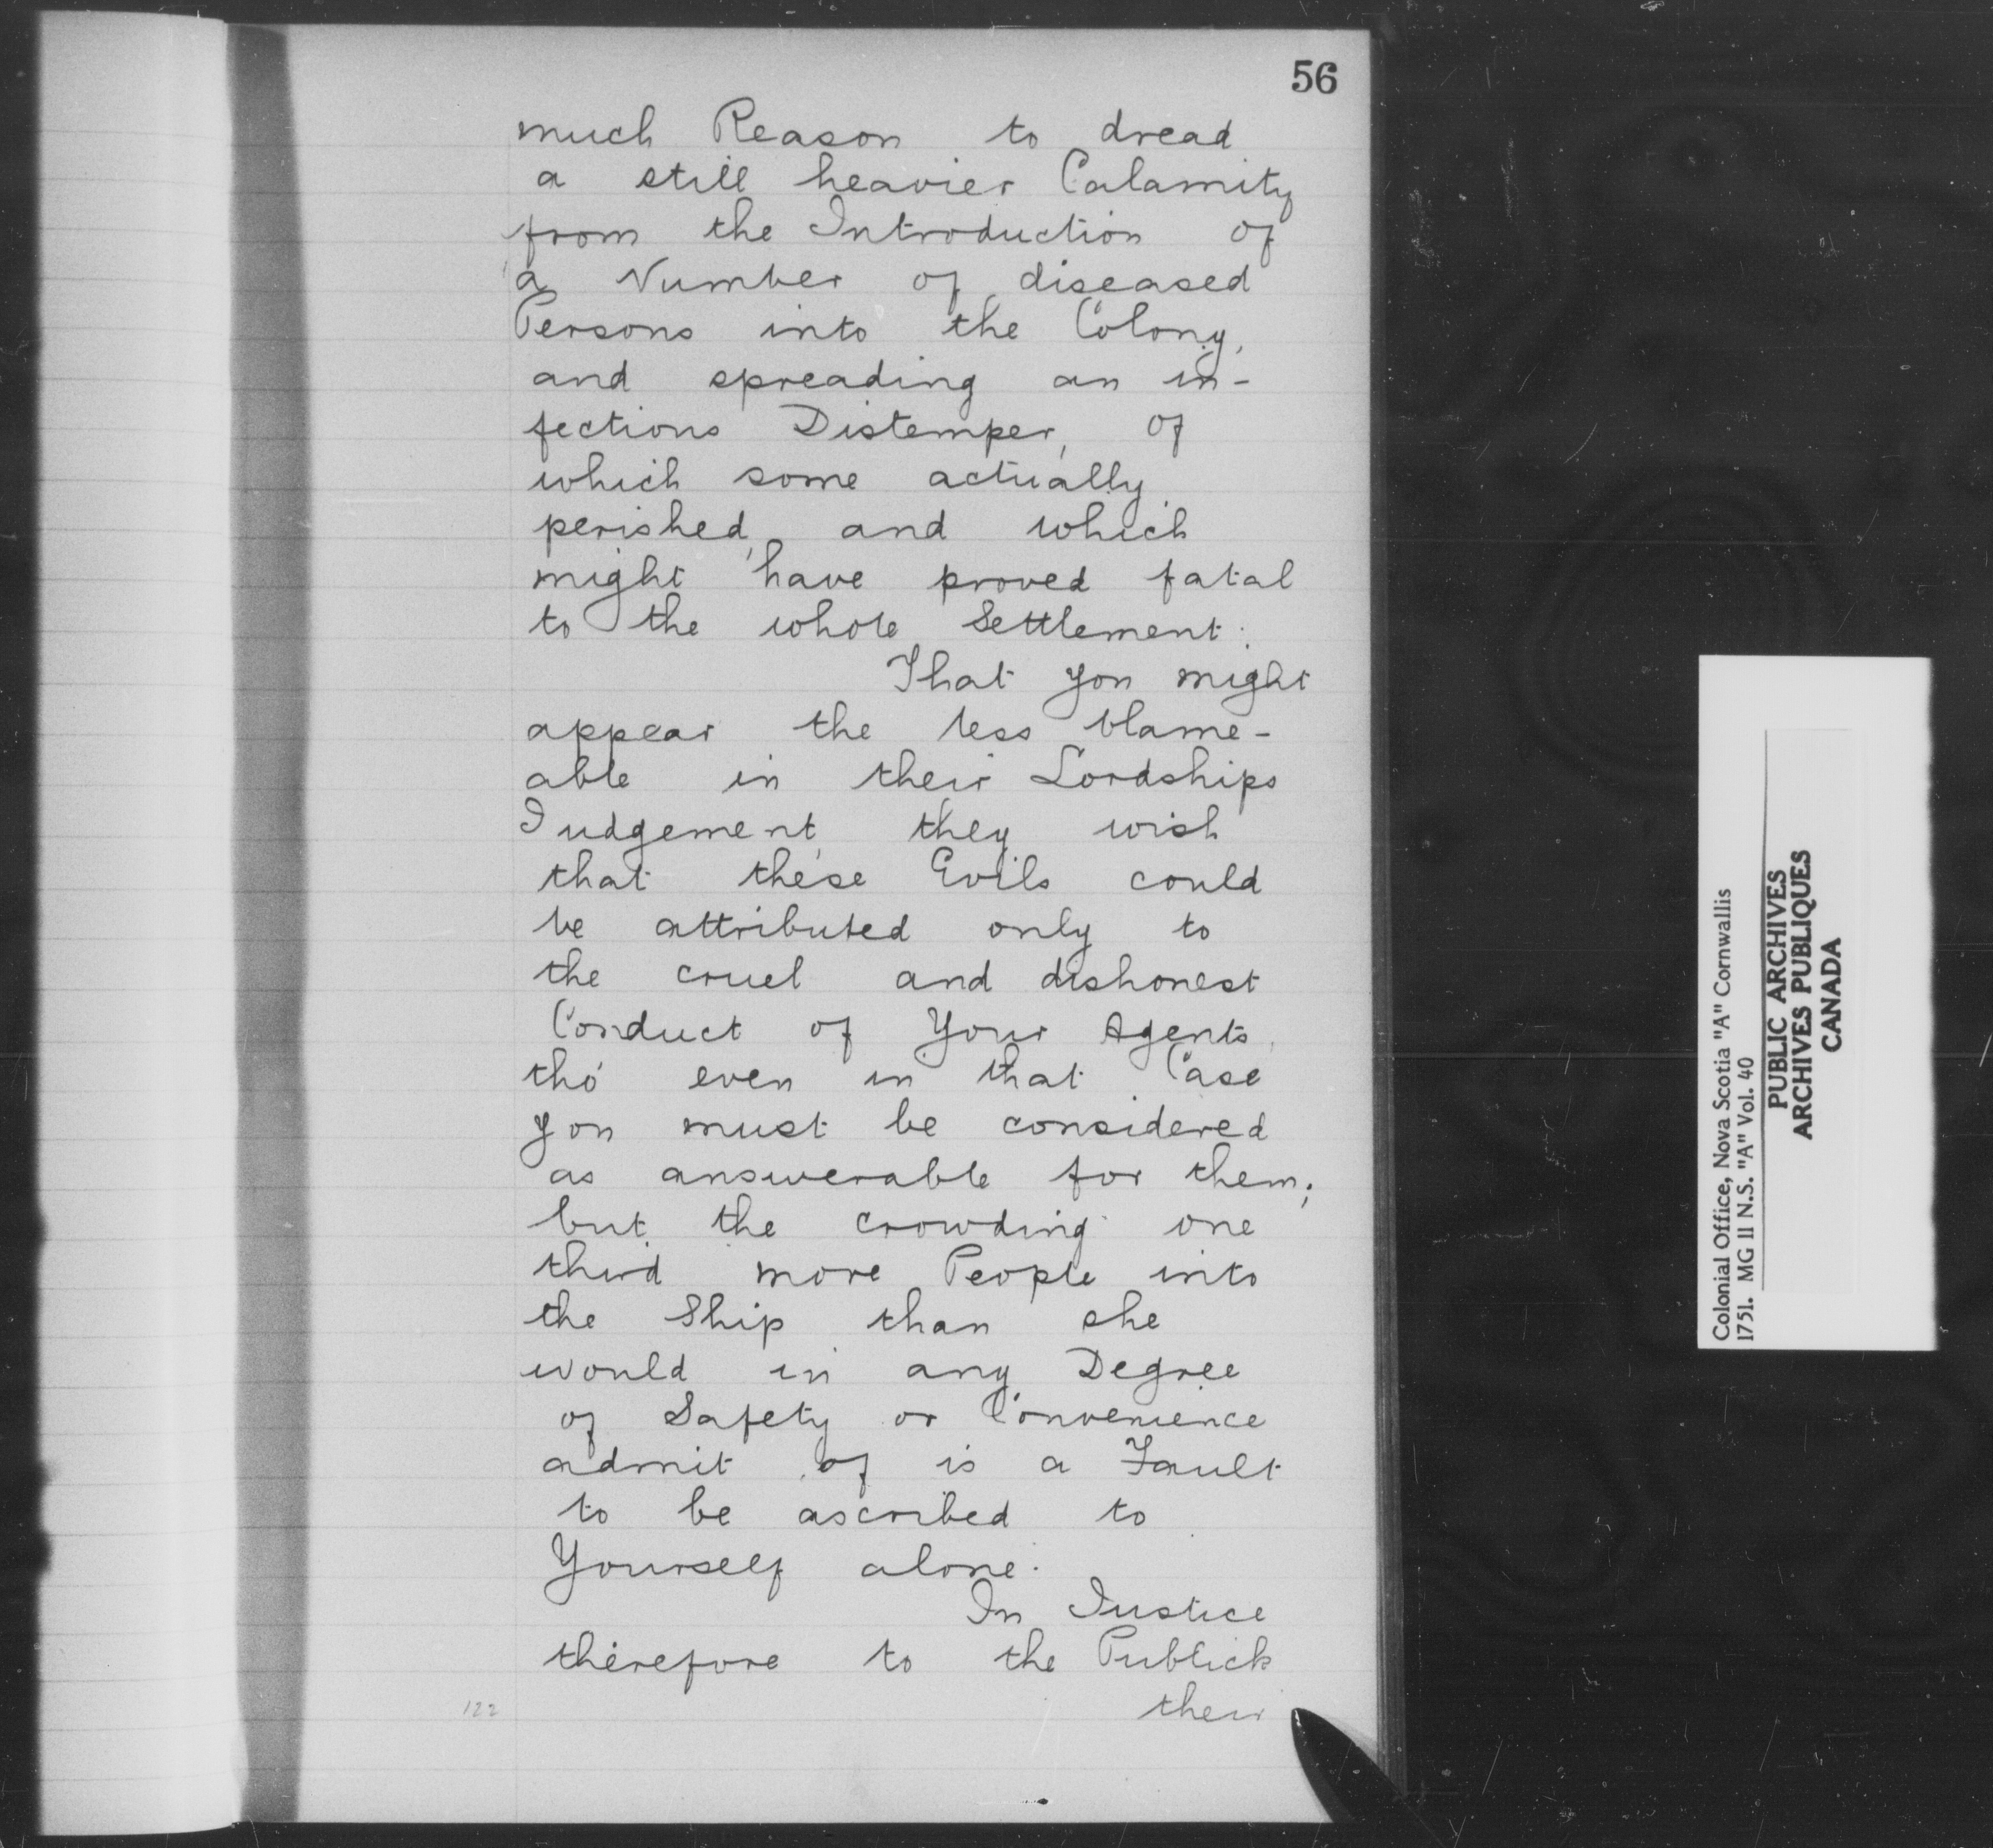 56
much Reason to dread
a still heavier Calamity
from the Introduction of
a Number of diseased
Persons into the Colony,
and spreading an in-
fectious Distemper, of
which some actually
perished, and which
might have proved fatal
to the whole Settlement.
That you might
appear the less blame-
able in their Lordships
Judgement, they wish
that these Evils could
be attributed only to
the cruel and dishonest
Conduct of Your Agents,
tho' even in that Case
you must be considered
as answerable for them;
but the crowding one
third more People into
the Ship than she
would in any Degree
of Safety or Convenience
admit of is a Fault
to be ascribed to
Yourself alone.
In Justice
therefore to the Publick
their
122
Colonial Office, Nova Scotia "A" Cornwallis
1751. MG 11 N.S. "A" Vol. 40
PUBLIC ARCHIVES
ARCHIVES PUBLIQUES
CANADA